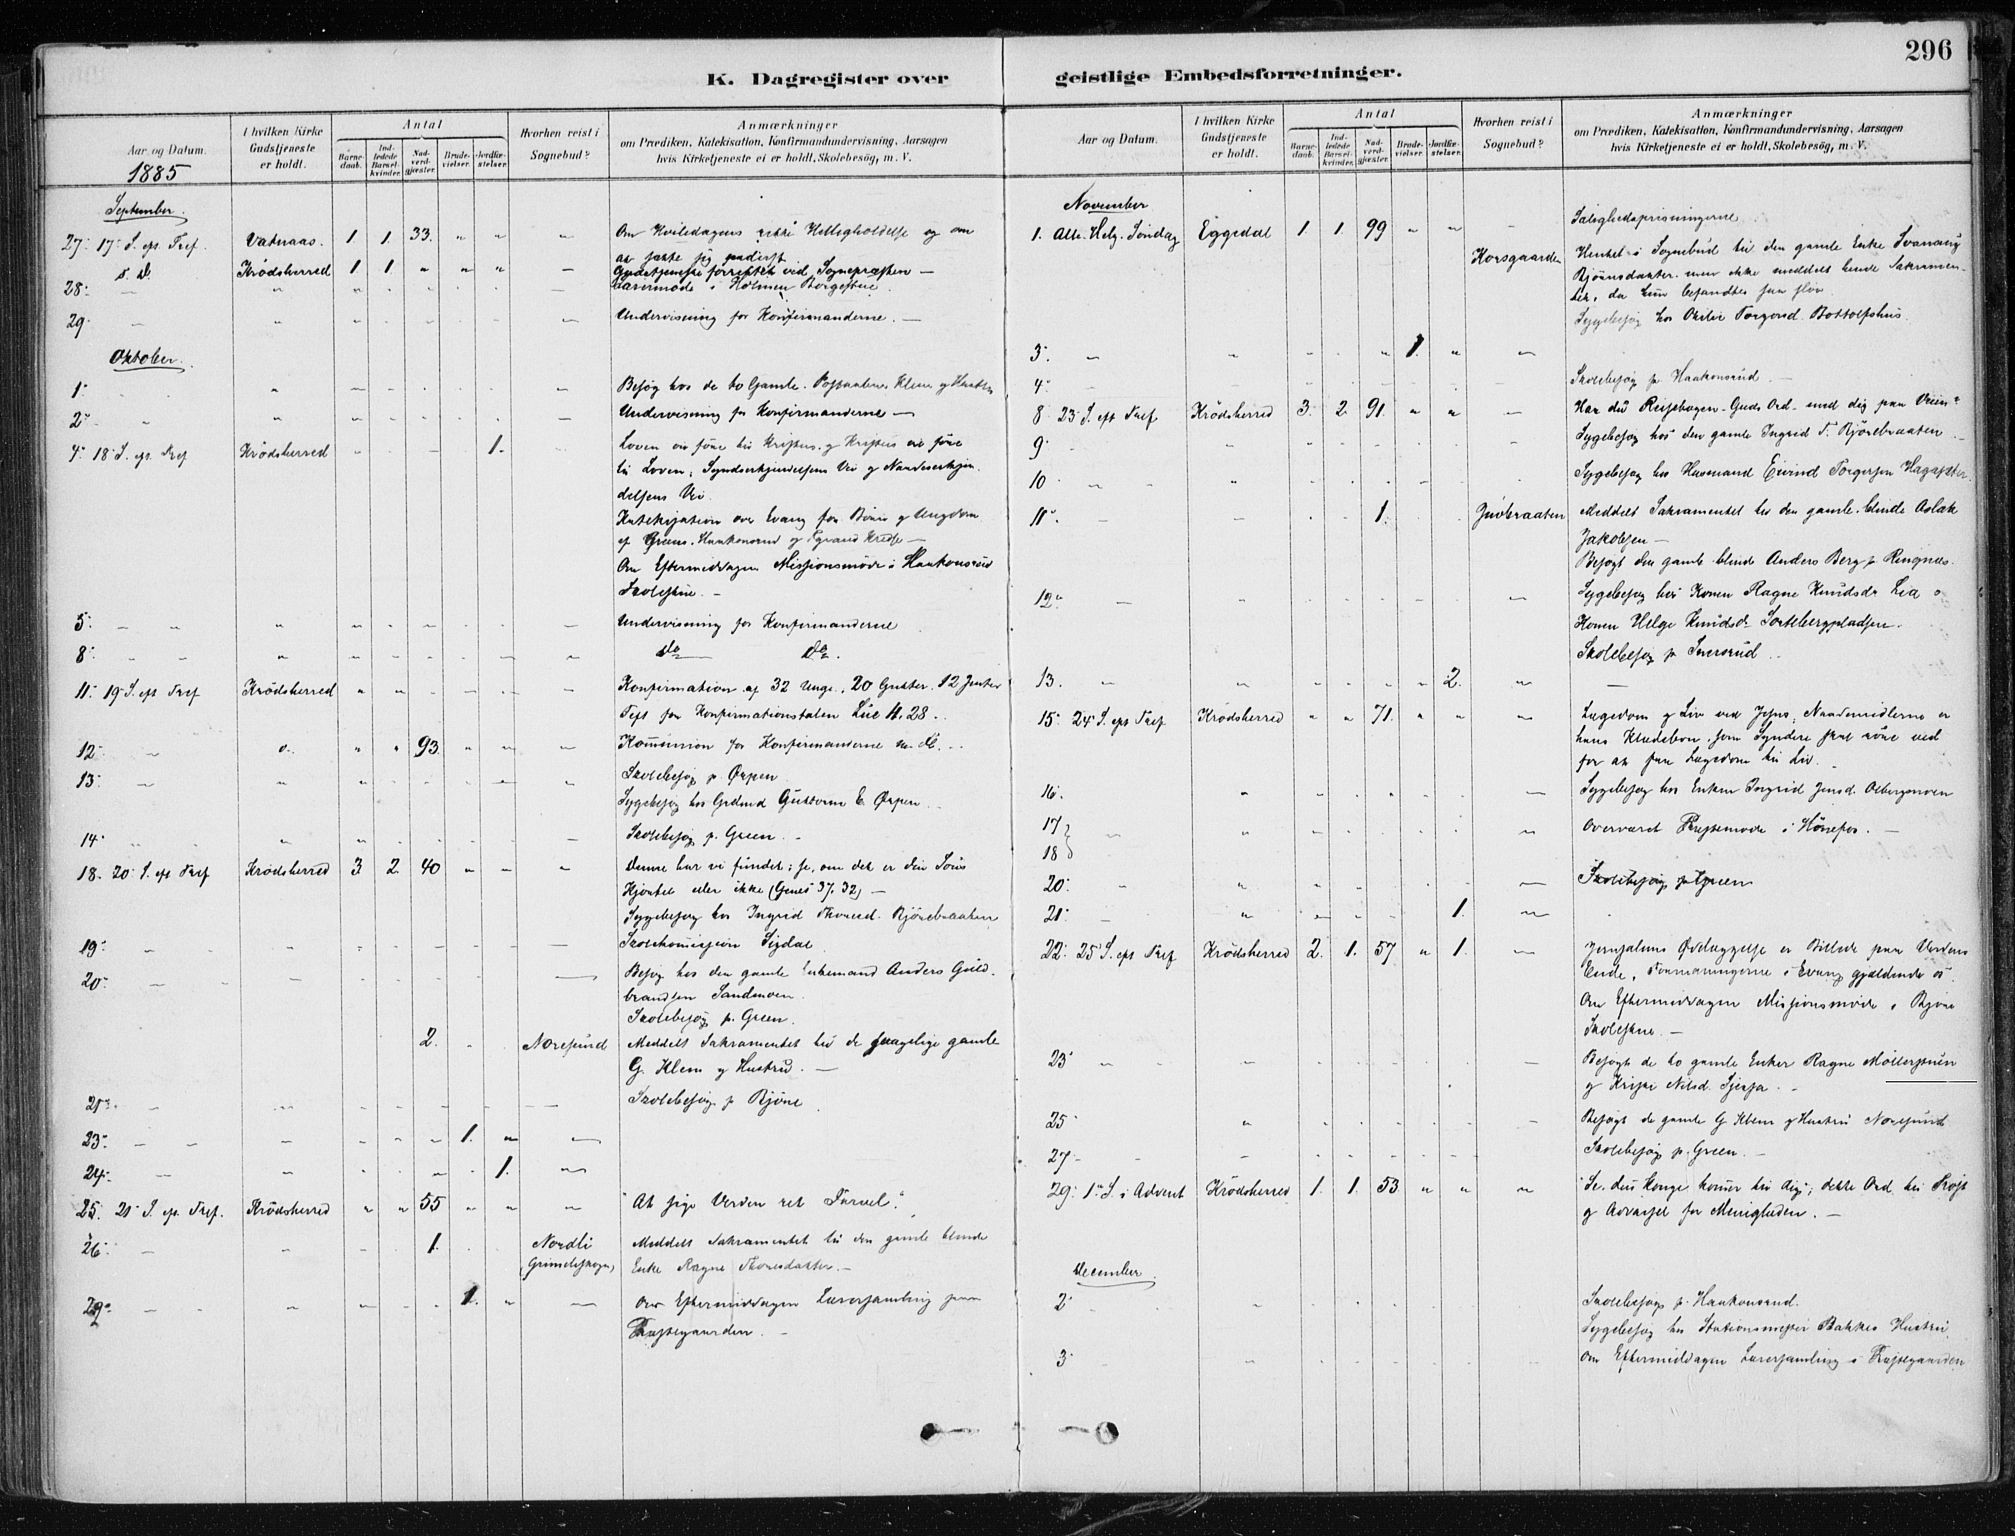 296
K. Dagregister over geistlige Embedsforretninger.
Aar og Datum.
I hvilken Kirke Gudstjeneste er holdt.
Antal
Barne-daab.
Ind-ledede Barsel-kvinder.
Nad-verd-gjæster.
Brude-vielser.
Jordfæ-stelser.
Hvorhen reist i Sognebud?
Anmærkninger
om Prædiken, Katekisation, Konfirmandundervisning, Aarsagen
hvis Kirketjeneste ei er holdt, Skolebesög, m. V.
1885
September.
27. 17 S. ef. Tref. Vatnaas. 1. 1. 33. Om Hviledagens rette Helligholdelse og om
at sætte sig nederst
s. D. Krødsherred 1 1 Gudstjeneste forrettet ved Sognepræsten
28. Lærermøde i Holmen
29. Undervisning for Konfirmanderne.
Oktober.
1. Besøg hos de to Gamle.
2. Undervisning for Konfirmanderne
4. 18 S. ef. Tref Krødsherred 1. Loven en före til Kristus, og Kristus en före
til Loven; Syndserkjendelsens Vei og Naadeserkjen
delsens Vei.
Katekisation over Evang for Börn og Ungdom
af Green, Haakonsrud og
Om Eftermiddagen Missionsmöde i Haakonsrud
Skolestue.
5. Undervisning for Konfirmanderne
8. do do.
11. 19 S. eft Tref Krødsherred Konfirmation af 32 Unge, 20 Gutter, 12 Jenter
Text for Konfirmationstalen Luc 11. 28.
12. 93 Kommunion for Konfirmanderne m. fl.
13. Skolebesög p. Ørpen
Sygebesög hos Grdmd Guttorm E. Ørpen
14. Skolebesög p. Green.
18. 20 S. eft Tref Krødsherred 3. 2. 40 Denne har vi fundet; se, om det er din Söns
Kjortel eller ikke (Genes 37. 32)
Sygebesög hos Ingrid Thoresd. Bjørebraaten
19. Skolekomission Sigdal
20. Besög hos den gamle Enkemand Anders Guld-
brandsen Sandmoen.
Skolebesög p. Green.
2. Noresund Meddelt Sakramentet til de svagelige gamle
G. Klem og Hustru.
21. Skolebesög p. Björe
23. 1.
24. 1.
25. 21 S. ef. Tref. Krødsherred 55 "At sige Verden ret Farvel".
26. 1. Nordli Meddelt Sakramentet til den gamle blinde
Enke Ragne Thoresdatter.
29. 1. Om Eftermiddagen Lærersamling paa
Præstegaarden.
Aar og Datum.
I hvilken Kirke Gudstjeneste er holdt.
Antal
Barne-daab.
Ind-ledede Barsel-kvinder.
Nad-verd-gjæster.
Brude-vielser.
Jordfæ-stelser.
Hvorhen reist i Sognebud?
Anmærkninger
om Prædiken, Katekisation, Konfirmandundervisning, Aarsagen
hvis Kirketjeneste ei er holdt, Skolebesög, m. V.
November
1. Alle. Helg. Söndag Eggedal 1. 1. 99 Salighedsprisningerne
Korsgaarden Hentet i Sognebud til den gamle Enke
Bjönnsdatter, men ikke meddelt hende Sakramen-
tet, da hun befandtes saa slöv
Sygebesög hos
3. 1.
4. Skolebesög p. Haakonsrud.
8. 23 S. eft Tref Krødsherred 3. 2. 91. Har du Reisebogen - Guds Ord - med dig paa Veien?
9. Sygebesög hos den gamle Ingrid T. Bjørebraaten
10 Sygebesög hos Husmand Eivind Torgersen
11. 1. Juvbraaten Meddelt Sakramentet til den gamle blinde Aslak
Jakobsen
Besögt den gamle blinde Anders Berg p. Ringnes.
12. Sygebesög hos Konen Ragne Knudsdr Lia o
Konen Helge Knudsd. Sortebergpladsen.
Skolebesög p. Snersrud.
13. 2.
15. 24 S. eft Tref Krødsherred 71. Lægedom og Liv ved Jesus; Naademidlerne er
hans Klædebon, som Syndere skal röre ved
for at faa Lægedom til Liv.
16. Sygebesög hos Enken Ingrid Jensd.
17
18 Overværet Præstemöde i Hönefos.
20. Skolebesög p. Green
21. 1.
22. 25 S. eft Tref Krødsherred 2. 1. 57 1. Jerusalems Ødelæggelse et Billede paa Verdens
Ende, Formaningerne i Evang gjældende os
Om Eftermiddagen Missionsmöde i Björe
Skolestue.
23 Besögt de to gamle Enker Ragne Möllerstuen
og
25 Besögt de gamle G Klem og Hustru Noresund
27 Skolebesög p. Green.
29. 1 S. i Advent Krødsherred 1. 1. 53 "Se, din Konge kommer til dig"; dette Ord til Tröst
og Advarsel for Menigheden.
December.
2 Skolebesög p. Haakonsrud.
Sygebesög hos Stationsmester Bakkes Hustru
3 Om Eftermiddagen Lærersamling i Præstegaarden